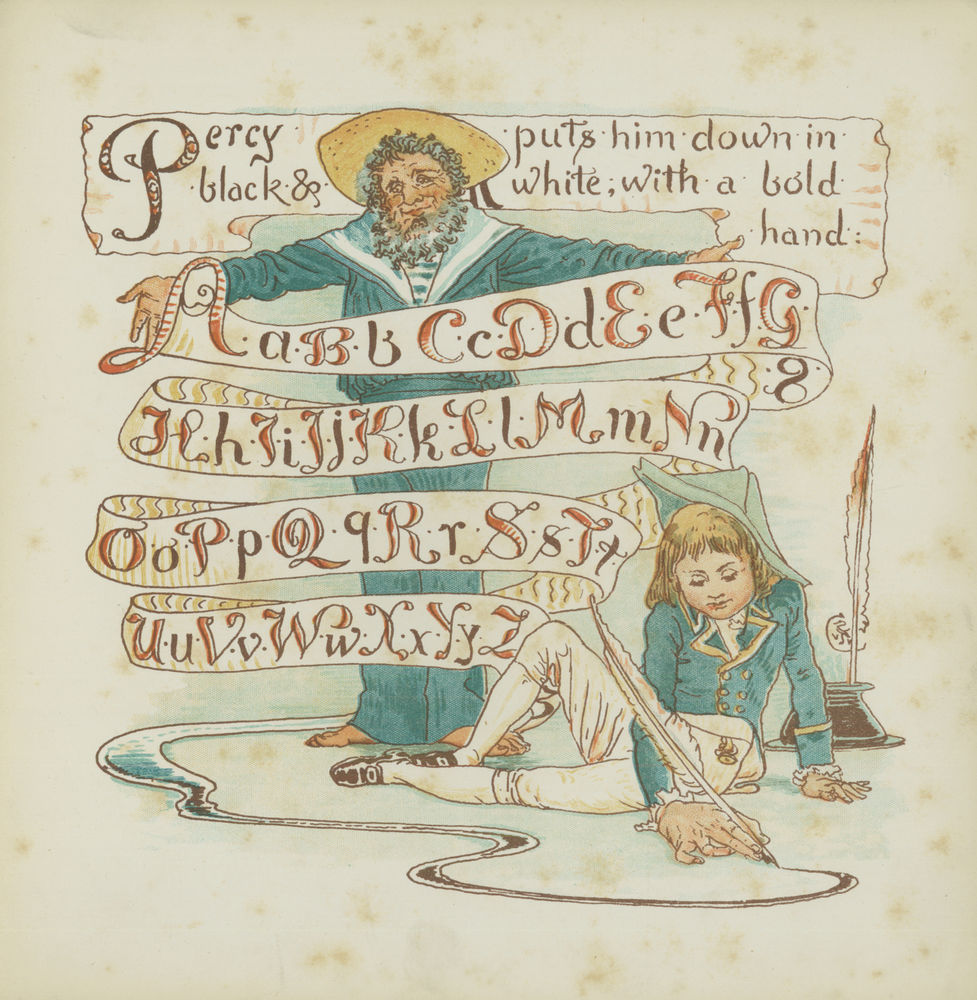 Percy puts·him·down·in·
·black·&· white;·with·a·bold·
·hand:
A·a·B·b·C·c·D·d·E·e·F·f·G·
·g·
H·h·I·i·J·j·K·k·L·l·M·m·N·n
O·o·P·p·Q·q·R·r·S·s·T·t
U·u·V·v·W·w·X·x·Y·y·Z